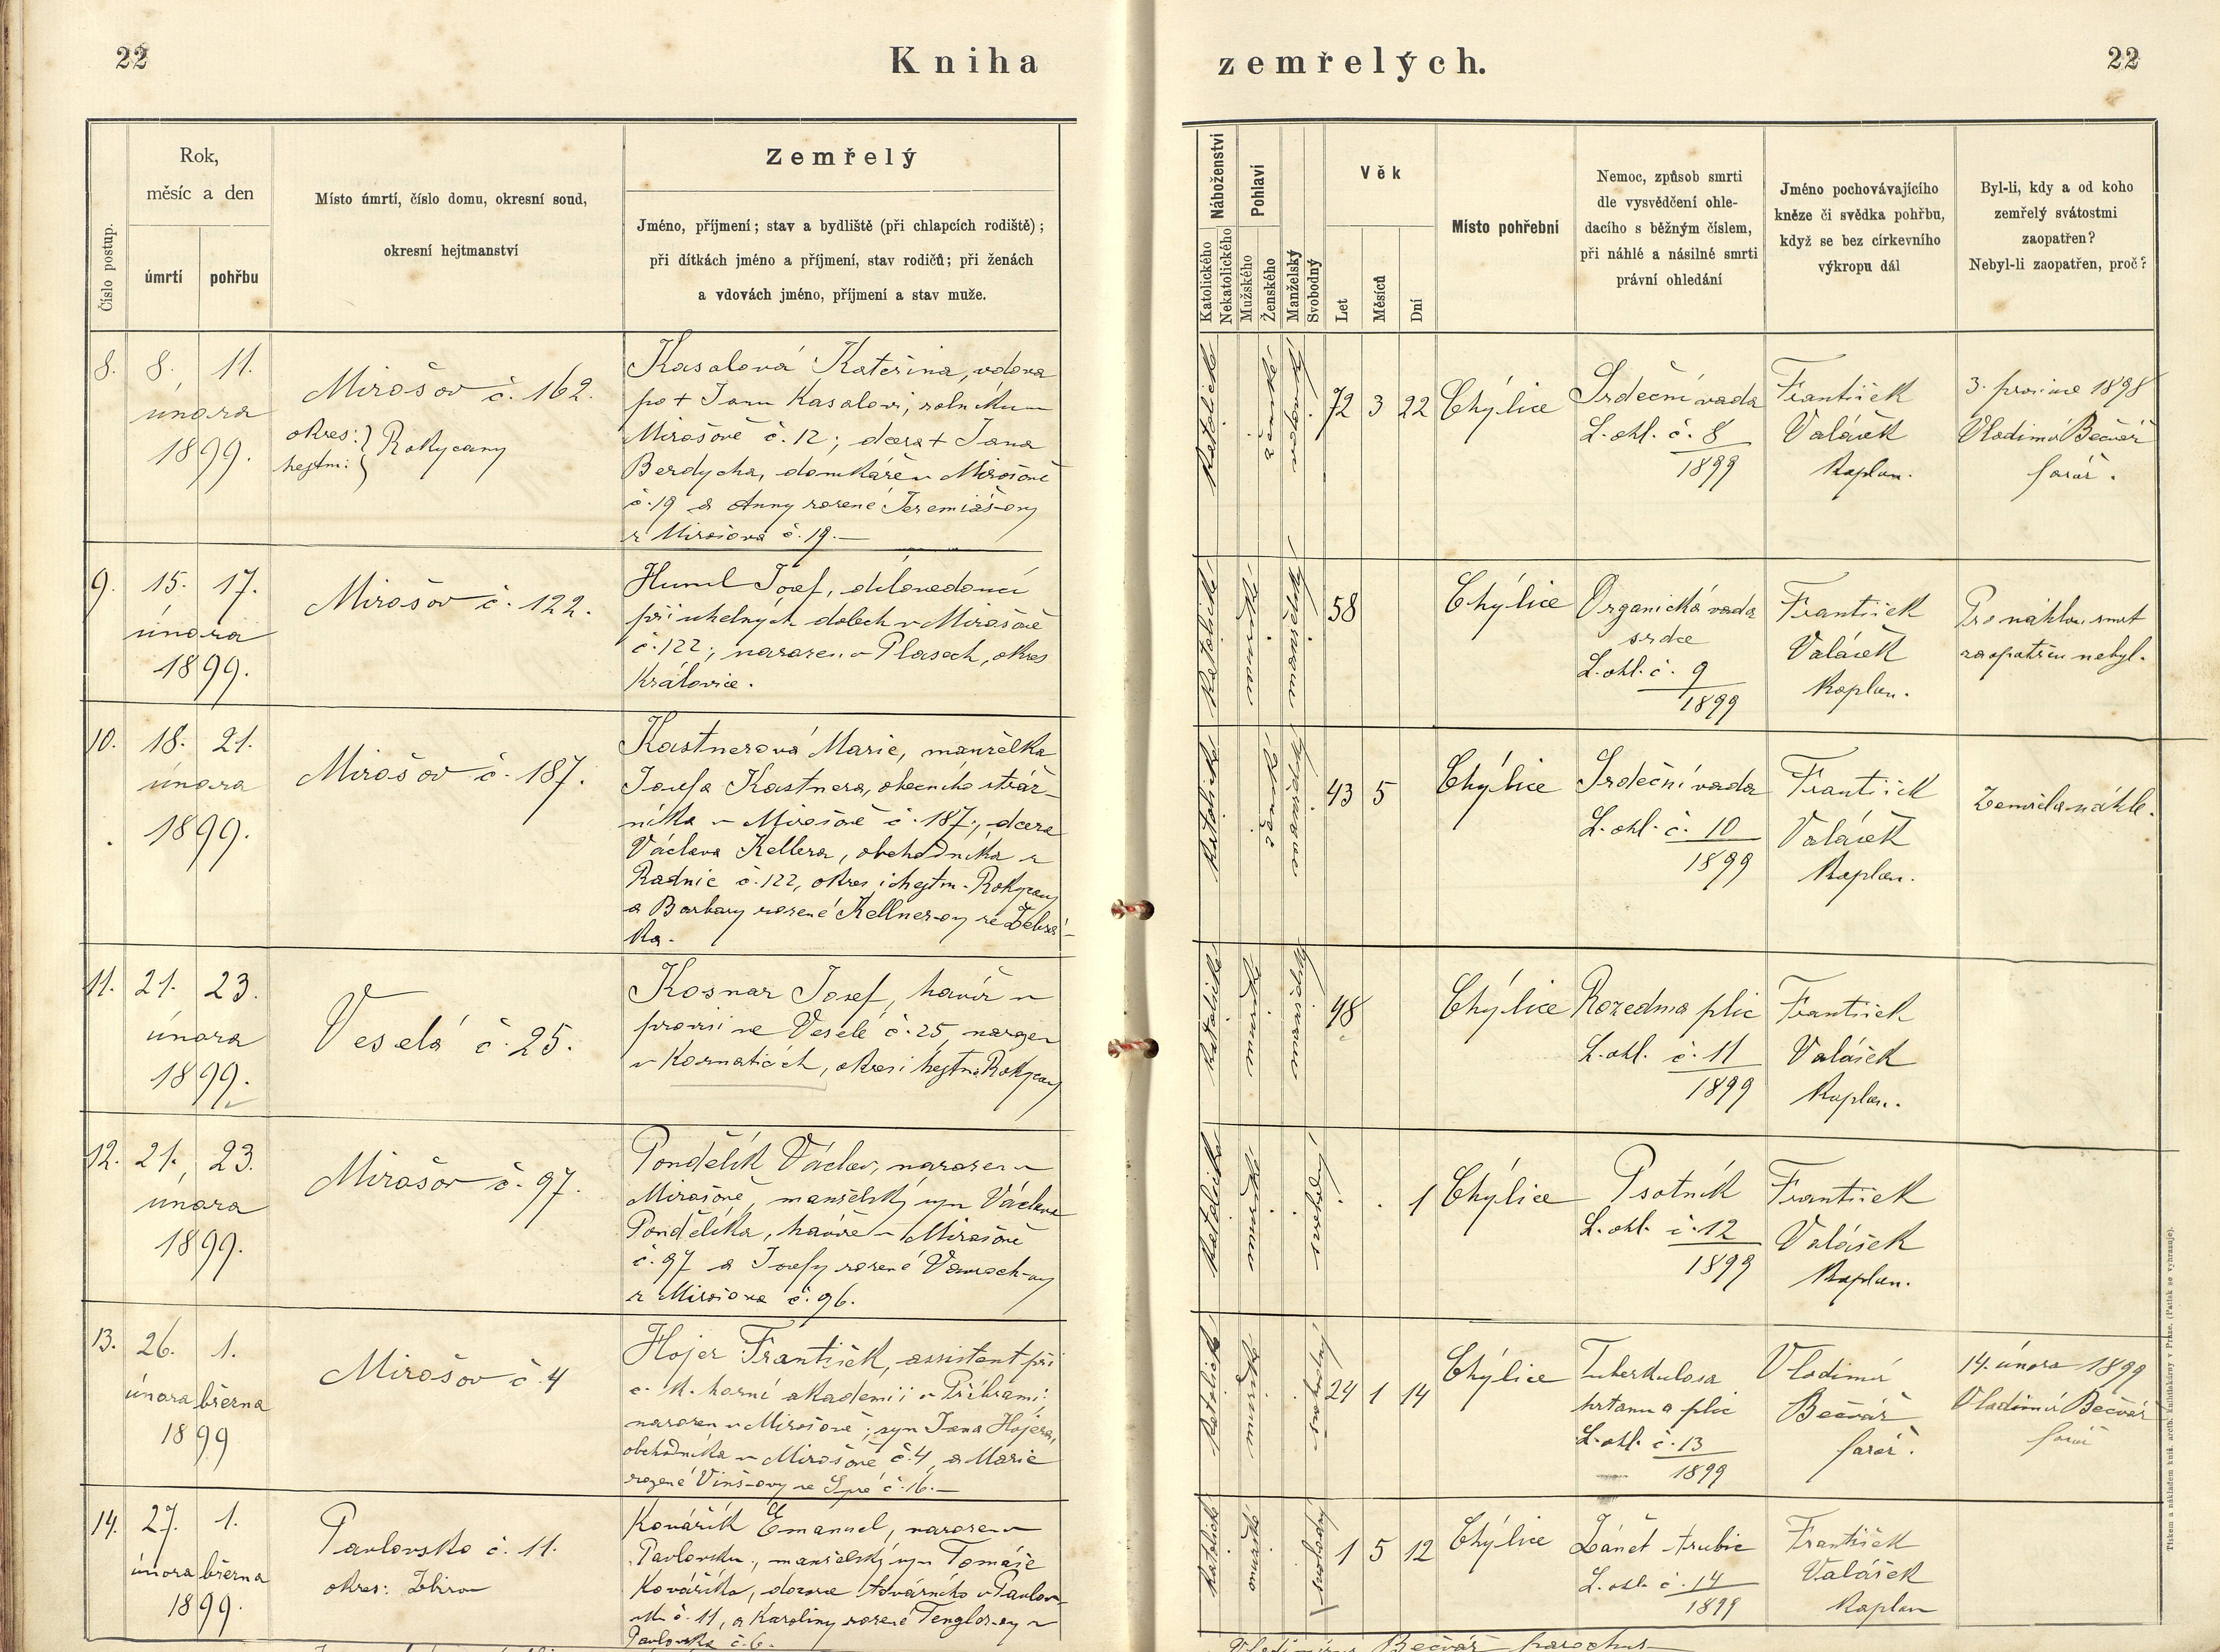 22
Kniha
zemřelých.
22
Číslo postup.
Rok,
měsíc a den
úmrtí
pohřbu
Místo úmrtí, číslo domu, okresní soud,
okresní hejtmanství
Zemřelý
Jméno, příjmení; stav a bydliště (při chlapcích rodiště);
při dítkách jméno a příjmení, stav rodičů; při ženách
a vdovách jméno, příjmení a stav muže.
Náboženství
Katolického
Nekatolického
Pohlaví
Mužského
Ženského
Manželský
Svobodný
Věk
Let
Měsíců
Dní
Místo pohřební
Nemoc, způsob smrti
dle vysvědčení ohle-
dacího s běžným číslem,
při náhlé a násilné smrti
právní ohledání
Jméno pochovávajícího
kněze či svědka pohřbu,
když se bez církevního
výkropu dál
Byl-li, kdy a od koho
zemřelý svátostmi
zaopatřen?
Nebyl-li zaopatřen, proč?
8.
8. 11.
února
1899.
Mirošov č. 162.
okres:
hejtm:
Rokycany
Kasalová Kateřina, vdova
po + Janu Kasalovi, rolníku v
Mirošově č. 12; dcera + Jana
Berdycha, domkáře v Mirošově
č. 19 a Anny rozené Jeremiáš-ovy
z Mirošova č. 19.—
katolické
ženské
vdovský
72 3 22
Chýlice
Srdeční vada
L. ohl. č. 8
1899
František
Valášek
Kaplan.
3. prosince 1898
Vladimír Bečvář
farář.
9.
15. 17.
února
1899.
Mirošov č. 122.
Huml Josef, dílovedoucí
při uhelných dolech v Mirošově
č. 122; narozen v Plasech, okres
Královice.
katolické
manželský
58
Chýlice
Organická vada
srdce
L. ohl. č. 9
1899
František
Valášek
Kaplan.
Pro náhlou smrt
zaopatřen nebyl.
10.
18. 21.
února
1899.
Mirošov č. 187.
Kastnerová Marie, manželka
Josefa Kastnera, obecního stráž-
níka v Mirošově č. 187; dcera
Václava Kellera, obchodníka z
Radnic č. 122, okres i hejtm. Rokycany
a Barbary rozené Kellner-ovy ze Žebrá-
ka.
katolické
ženské
manželský
43 5
Chýlice
Srdeční vada
L. ohl. č. 10
1899
František
Valášek
Kaplan.
Zemřela náhle.
11.
21. 23.
února
1899.
Veselá č. 25.
Kosnar Josef, havíř v
provisi ve Veselé č. 25, narozen
v Kornaticích, okres i hejtm. Rokycany
katolické
manželský
48
Chýlice
Rozedma plic
L. ohl. č. 11
1899
František
Valášek
Kaplan.
12.
21. 23.
února
1899.
Mirošov č. 97.
Pondělík Václav, narozen v
Mirošově, manželský syn Václava
Pondělíka, havíře v Mirošově
č. 97 a Josefy rozené
z Mirošova č. 96.
katolické
svobodný
1
Chýlice
Psotník
L. ohl. č. 12
1899
František
Valášek
Kaplan.
13.
26. 1.
února března
1899
Mirošov č. 4
Hojer František, assistent při
c. k. horní akademii v Příbrami,
narozen v Mirošově; syn Jana Hojera,
obchodníka v Mirošově č. 4, a Marie
rozené Vinš-ovy ze č. 16.—
katolické
svobodný
24 1 14
Chýlice
Tuberkulosa
hrtanu a plic
L. ohl. č. 13
1899
Vladimír
Bečvář
farář.
14. února 1899
Vladimír Bečvář
farář
14.
27. 1.
února března
1899.
Pavlovsko č. 11.
okres: Zbirov
Kovářík Emanuel, narozen v
Pavlovsku, manželský syn Tomáše
Kováříka, dozorce továrního v Pavlov-
sku č. 11, a Karoliny rozené Tengler-ovy z
Pavlovska č. 6.
katolické
mužské
svobodný
1 5 12
Chýlice
Zánět trubic
L. ohl. č. 14
1899
František
Valášek
Kaplan
Vladimirus Bečvář parochus